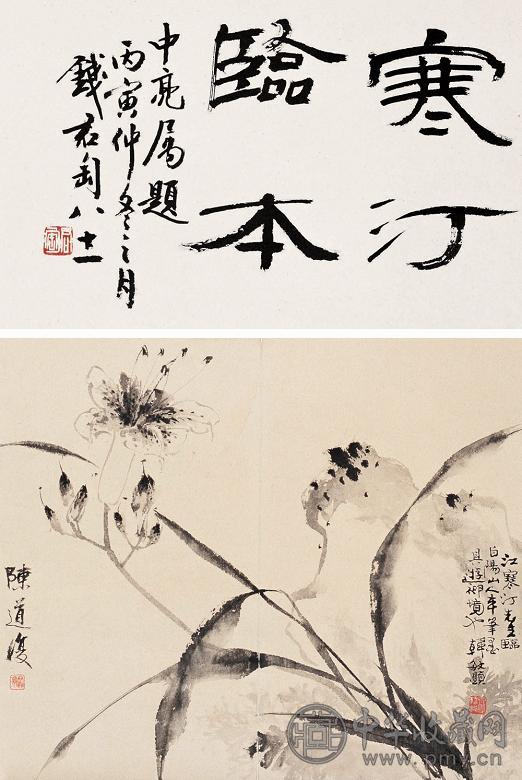 寒汀
臨本
中亮属題
丙寅仲冬之月
錢君匋八十一
江寒汀先生臨
白陽山人本筆墨
韓敏題
陳道復
中华收藏网
www.pmy.cn